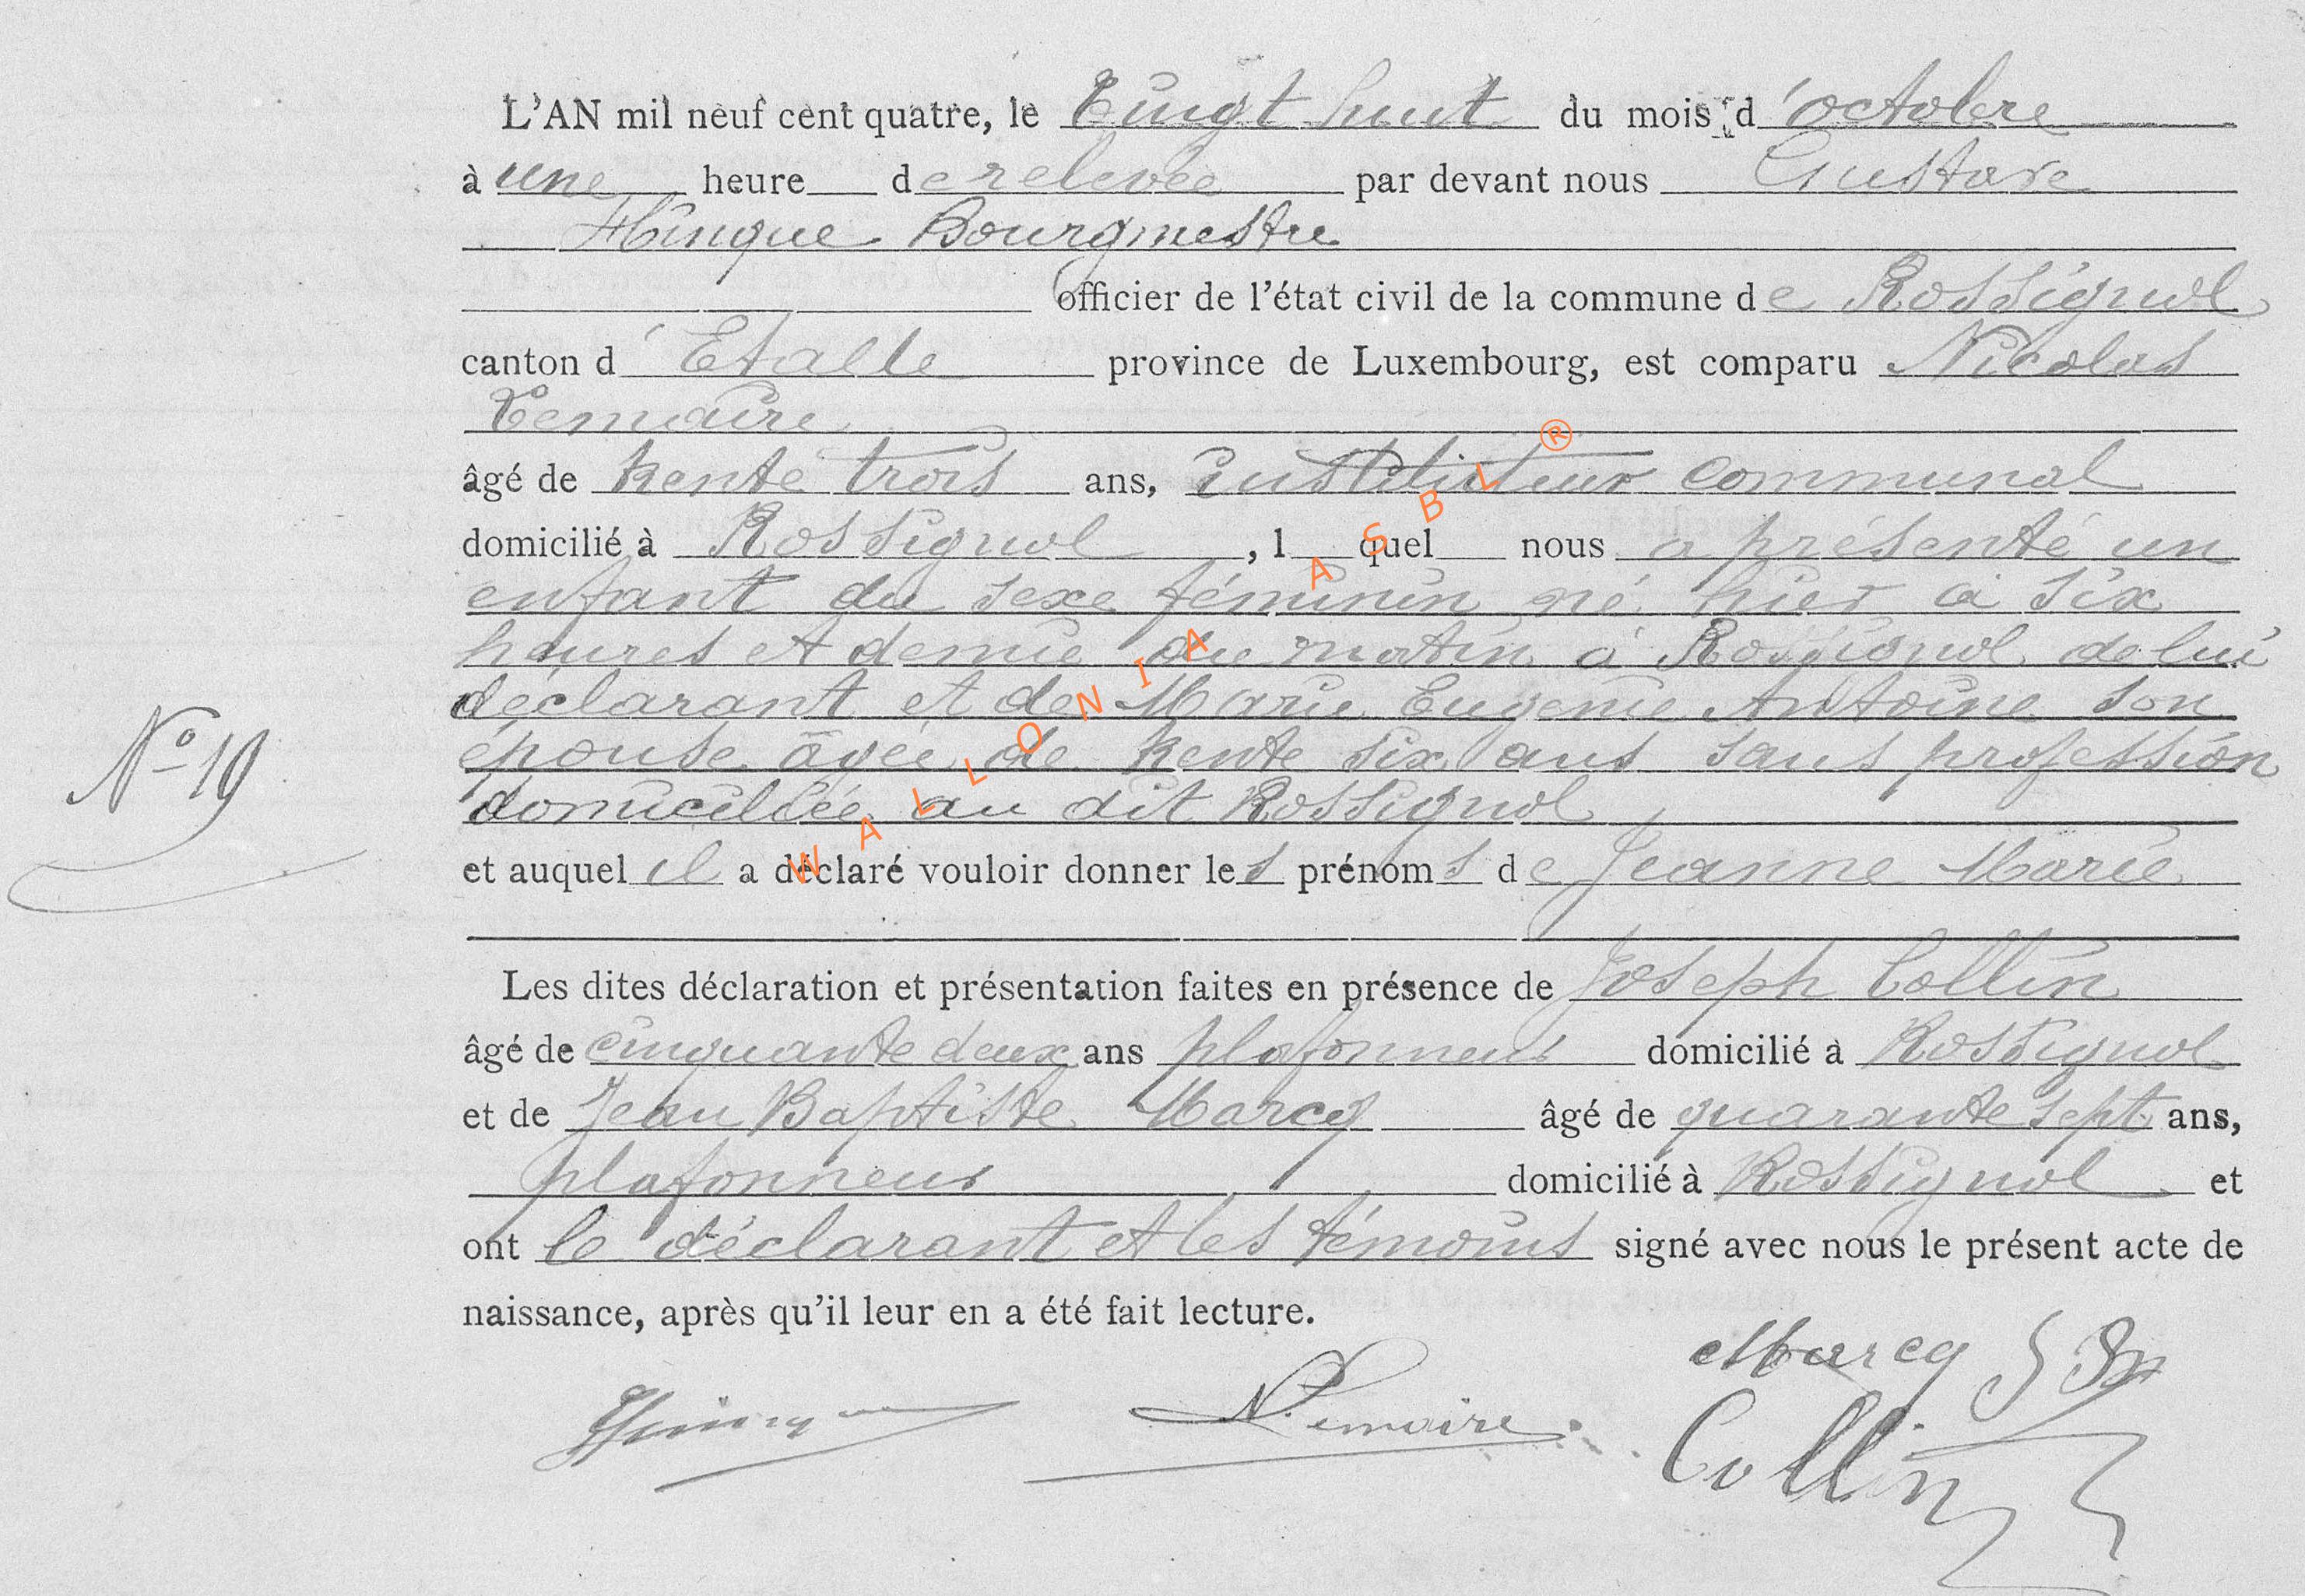 L'AN mil neuf cent quatre, le Vingt huit du mois d'octobre
à une heure de relevée par devant nous Gustave
Hinque Bourgmestre
officier de l'état civil de la commune de Rossignol
canton d'Etalle province de Luxembourg, est comparu Nicolas
Lemaire
âgé de trente trois ans, Instituteur communal
domicilié à Rossignol, l quel nous a présenté un
enfant du sexe féminin né hier à six
heures et demie du matin à Rossignol de lui
déclarant et de Marie Eugenie Antoine son
épouse âgée de trente six ans sans profession
domiciliée au dit Rossignol
N° 19
et auquel il a déclaré vouloir donner les prénoms de Jeanne Marie
Les dites déclaration et présentation faites en présence de Joseph Collin
âgé de cinquante deux ans plafonneur domicilié à Rossignol
et de Jean Baptiste Marcq âgé de quarante sept ans,
plafonneur domicilié à Rossignol et
ont le déclarant et les témoins signé avec nous le présent acte de
naissance, après qu'il leur en a été fait lecture.
Marcq J Bte
Hinque N. Lemaire
Collin
WALLONIA ASBL ®